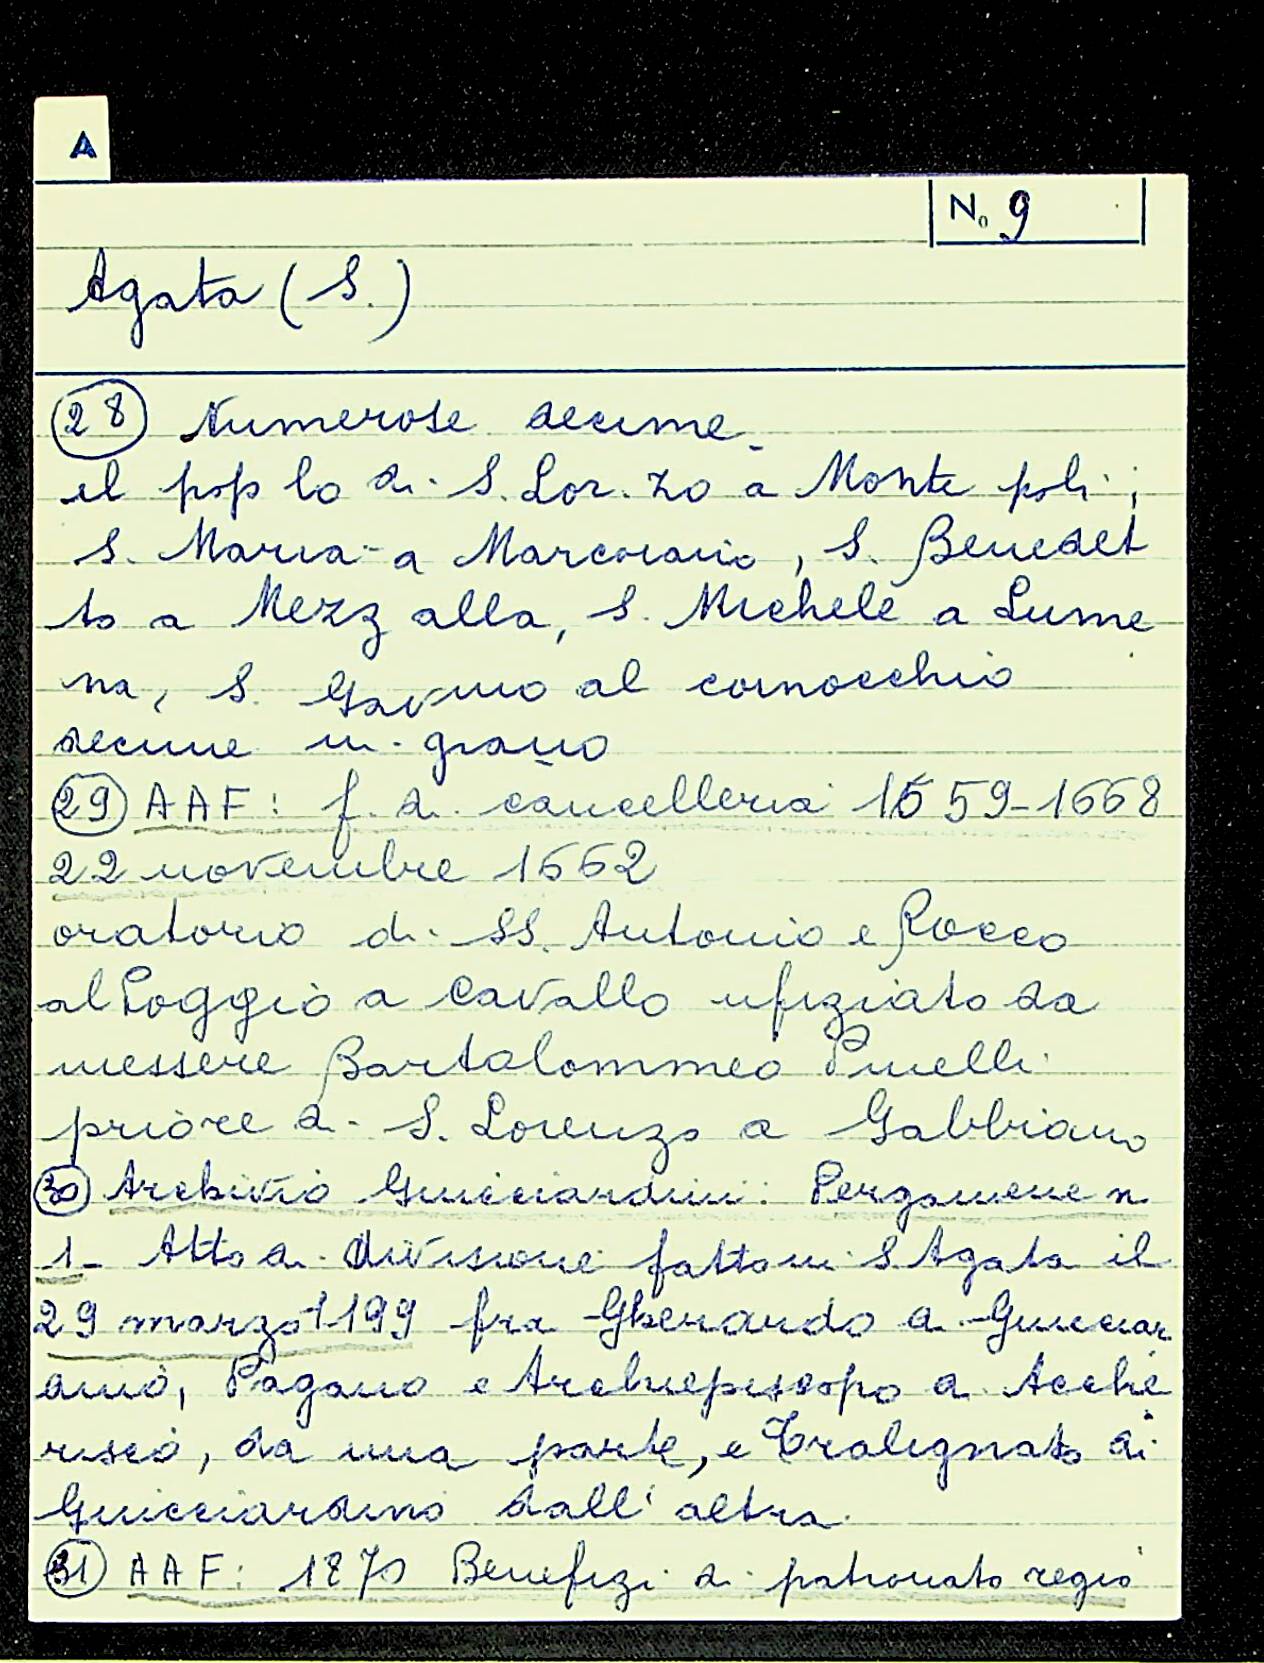 A
No 9
Agata (S.)
28 Numerose decime
il pop lo di S. Lor. zo a Monte poli;
S. Maria a Marcoiano, S. Benedet
to a Mezz alla, S. Michele a Lume
na, S. Gavino al cornocchio
decime in grano
29 AAF: f. di cancelleria 1659-1668
22 novembre 1662
oratorio di SS. Antonio e Rocco
al Poggio a Cavallo ufiziato da
messere Bartolommeo Pinelli
priore di S. Lorenzo a Gabbiano
30 Archivio Guicciardini: Pergamene n
1- Atto di divisione fatto in S. Agata il
29 marzo 1199 fra Gherardo di Guicciar
dino, Pagano e Archiepiscopo di Acche
riscio, da una parte, e Tralignato di
Guicciardino dall'altra.
31 AAF: 1870 Benefizi di patronato regio